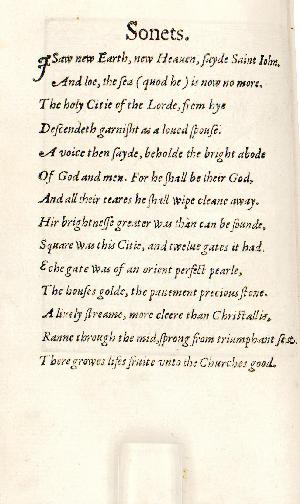 Sonets.
I Saw new Earth, new Heauen, sayde Saint Iohn.
And loe, the sea (quod he) is now no more.
The holy Citie of the Lorde, from hye
Descendeth garnisht as a loued spouse.
A voice then sayde, beholde the bright abode
Of God and men. For he shall be their God,
And all their teares he shall wipe cleane away.
Hir brightnesse greater was than can be founde,
Square was this Citie, and twelue gates it had.
Eche gate was of an orient perfect pearle,
The houses golde, the pauement precious stone.
A liuely streame, more cleere than Christall is,
Ranne through the mid, sprong from triumphant seat.
There growes lifes fruite vnto the Churches good.